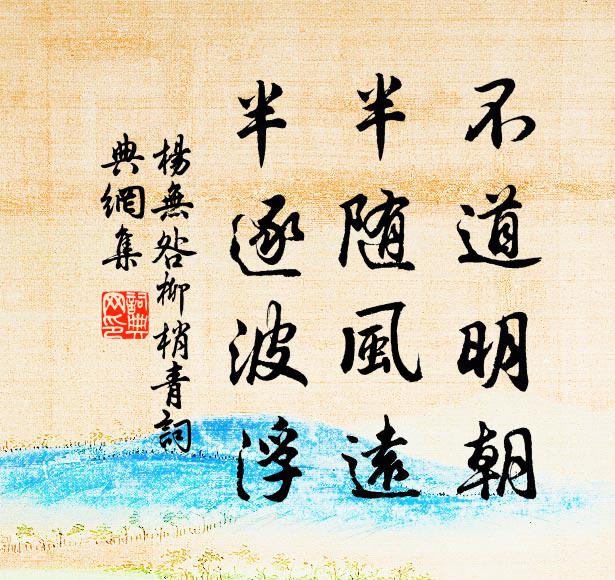 不道明朝
半随風遠
半逐波浮
楊無咎柳梢青詞
典網集
詞典
网印